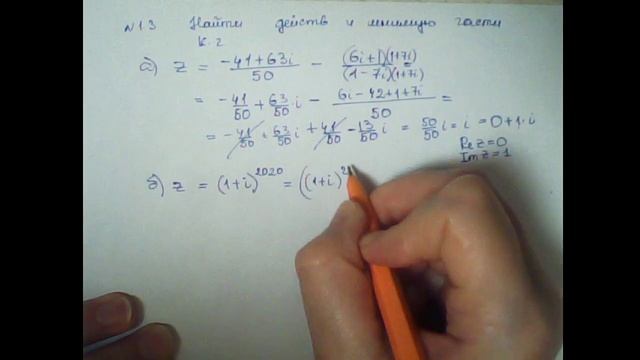 №1.3 Найти действ и мнимую части
К.ч
а) z = (-41+63i)/50 - ((6i+1)(1+7i))/((1-7i)(1+7i))
= -41/50 + 63/50 i - (6i-42+1+7i)/50 =
= -41/50 + 63/50 i + 41/50 - 13/50 i = 50/50 i = i = 0+1·i
Re z=0
Im z=1
б) z = (1+i)^2020 = ((1+i)^2